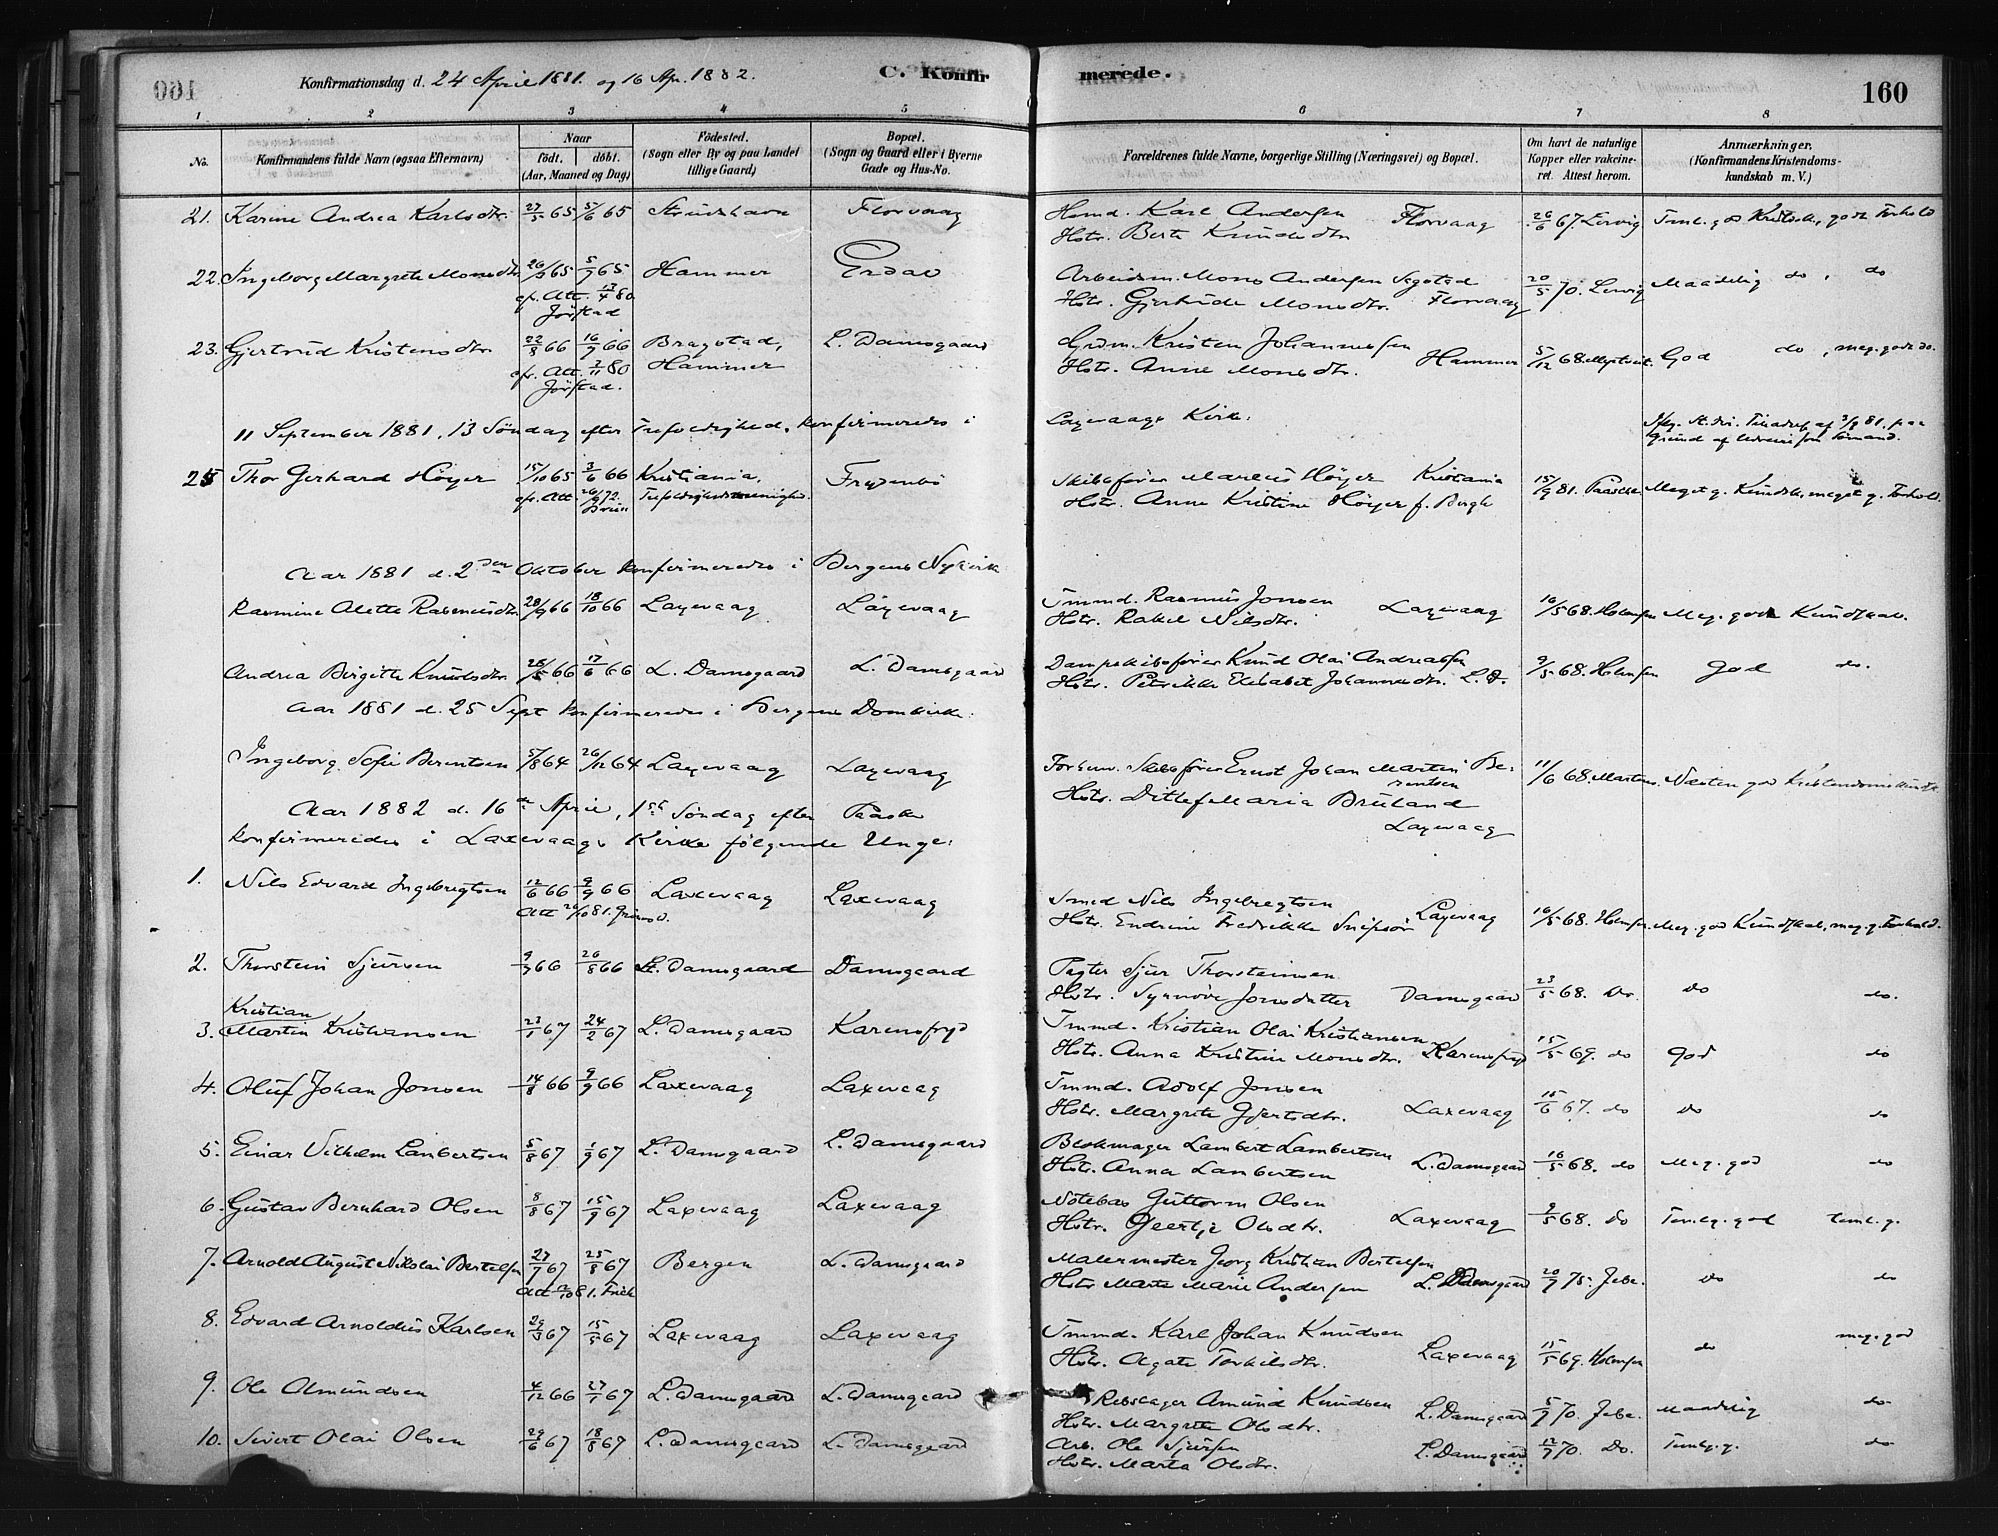 Konfirmationsdag d. 24 April 1881. og 16 Ap. 1882.
C. Konfirmerede.
160
1 2 3 4 5 6 7 8
No.
Konfirmandens fulde Navn (ogsaa Efternavn)
Naar
født. døbt.
(Aar, Maaned og Dag)
Fødested.
(Sogn eller By og paa Landet tillige Gaard)
Bopæl.
(Sogn og Gaard eller i Byerne Gade og Hus-No.
Forældrenes fulde Navne, borgerlige Stilling (Næringsvei) og Bopæl.
Om havt de naturlige Kopper eller vakcineret. Attest herom.
Anmærkninger.
(Konfirmandens Kristendomskundskab m. V.)
21. Karine Andrea Karlsdtr. 27/5 65 5/6 65 Strudshavn Florvaag Husmd. Karl Andersen Florvaag 26/6 67. Lervig Teml. god Kristsk., godt Forhold
Hstr. Berte Knudsdtr
22. Ingeborg Margrete Monsdtr 65 5/7 65 Hammer Erdal Arbeidsm. Mons Andersen 20/5 70. Lervig Maadelig do, do
ef. Att. 13/4 80 Hstr. Gjertrude Monsdtr. Florvaag
Jørstad
23. Gjertrud Kristensdtr. 22/8 66 16/9 66 Bragstad, L. Damsgaard Grdm. Kristen Johannessen Hammer 5/12 68. God do, meg. godt do.
ef. Att. 2/11 80 Hammer Hstr. Anne Monsdtr.
Jørstad.
11 September 1881, 13 Søndag efter Trefoldighed, konfirmeredes i Laxevaags Kirke:
25 Thor Gerhard Höyer 15/10 65 3/6 66 Kristiania, Frydenbö Skibsfører Marius Höyer Kristiania 15/9 81. Paasche Meget g. Kundsk., meget g. Forhold.
ef. Att. Trefoldighedsmenighed. Hstr. Anne Kristine Höyer f. Bergh
Aar 1881 d. 2den Oktober konfirmeredes i Bergens Nykirke
Rasmine Alette Rasmusdtr. 28/9 66 18/10 66 Laxevaag Laxevaag Tmmd. Rasmus Jonsen Laxevaag 16/5 68. Holmsen Meg. godt Kundskab.
Hstr. Rakel Nilsdtr.
Andrea Birgitte Knudsdtr. 28/5 66 17/6 66 L. Damsgaard L. Damsgaard Dampskibsfører Knud Olai Andreassen 9/5 68. Holmsen God do.
Hstr. Petrikke Elisabet Johannesdtr. L.D.
Aar 1881 d. 25 Sept konfirmeredes i Bergens Domkirke:
Ingeborg Sofie Berentsen 5/8 64 26/12 64 Laxevaag Laxevaag Forhenv. Skibsfører Ernst Johan Martin Berentsen 11/6 68. Martens. Næsten god Kristendomskundsk.
Hstr. Ditlef Maria Bruland
Laxevaag
Aar 1882 d. 16de April, 1ste Søndag efter Paaske
konfirmeredes i Laxevaags Kirke følgende Unge:
1. Nils Edvard Ingebregtsen 12/6 66 9/9 66 Laxevaag Laxevaag Smed Nils Ingebregtsen Laxevaag 16/5 68. Holmsen. Meg. god Kundskab, meg. g. Forhold.
Att 26/10 81. Hstr. Endrine Fredrikke
2. Thorstein Sjursen 9/7 66 26/8 66 L. Damsgaard Damsgaard Pagter Sjur Thorsteinsen 23/5 68. Do. do do.
Hstr. Synnöve Jonsdatter Damsgaard
3. Kristian
Martin Kristiansen 23/1 67 24/2 67 L. Damsgaard Karensfryd Tmmd. Kristian Olai Kristiansen 15/5 69. do God do
Hstr. Anna Kristine Monsdtr. Karensfryd
4. Oluf Johan Jonsen 14/8 66 9/9 66 Laxevaag Laxevaag Tmmd. Adolf Jonsen
Hstr. Margrete Gjertsdtr. Laxevaag 15/6 67. do do do
5. Einar Vilhelm Lambertsen 5/8 67 1/9 67 L. Damsgaard L. Damsgaard Blokmager Lambert Lambertsen
Hstr. Anna Lambertsen L. Damsgaard 16/5 68. do Meg. god do
6. Gustav Bernhard Olsen 8/8 67 15/9 67 Laxevaag Laxevaag Notebas Guttorm Olsen
Hstr. Geertje Olsdtr. Laxevaag 9/5 68. do Teml. god teml. g.
7. Arnold August Nikolai Bertelsen 27/7 67 25/8 67 Bergen L. Damsgaard Malermester Georg Kristian Bertelsen
Att 81. Frich Hstr Marte Marie Andersen L. Damsgaard 20/7 75. Jebe. do do
8. Edvard Arnoldus Karlsen 29/3 67 15/5 67 Laxevaag Laxevaag Tmmd. Karl Johan Knudsen
Hstr. Agate Torkilsdtr. Laxevaag 15/5 69. Holmsen do meg. god
9. Ole Amundsen 4/12 66 27/1 67 L. Damsgaard L. Damsgaard Rebslager Amund Knudsen
Hstr. Margrete Olsdtr. L. Damsgaard 5/7 70. Jebe. Maadelig do
10. Sivert Olai Olsen 29/6 67 18/8 67 L. Damsgaard L. Damsgaard Arb. Ole Sjursen
Hstr. Marta Olsdtr. L. Damsgaard 12/7 70. Do. Teml. g. do